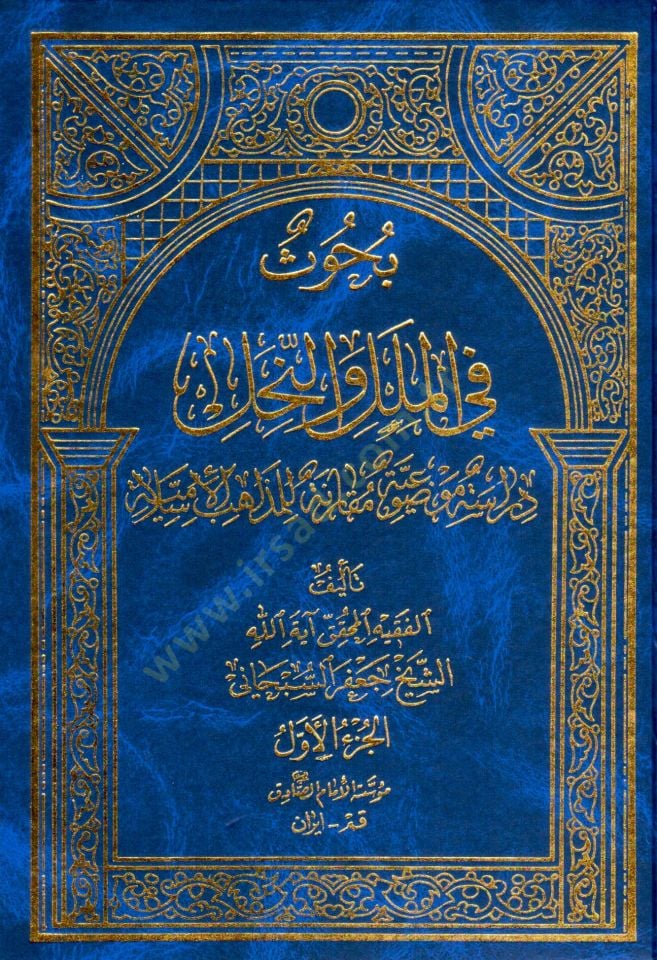 بُحُوثٌ
في المِلَلِ وَالنِّحَلِ
دِرَاسَةٌ مَوضُوعِيَّةٌ مُقَارِنَةٌ لِلمَذَاهِبِ الإِسْلَامِيَّةِ
تَأْلِيفُ
الفَقِيهِ المُحَقِّقِ آيَةِ اللهِ
الشَّيْخِ جَعْفَرِ السُّبْحَانِي
الجُزْءُ الأَوَّلُ
مؤسسة الإمام الصادق
قم - ايران
www.irsa